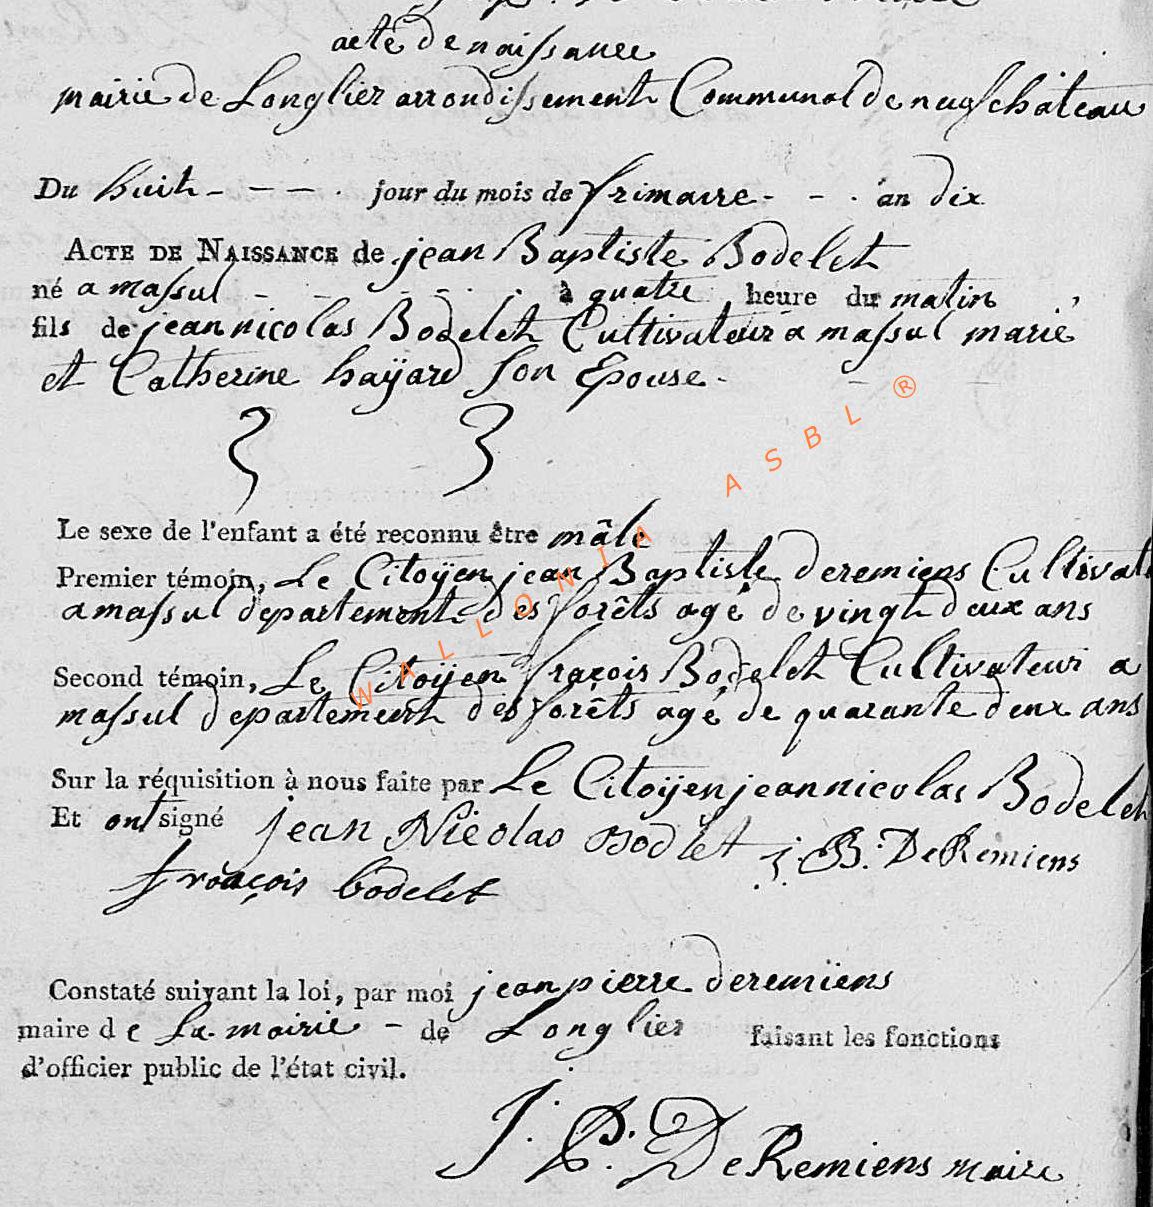 acte de naissance
mairie de Longlier arrondissement Communal de neufchâteau
Du huit - - - - . jour du mois de frimaire - - . an dix
ACTE DE NAISSANCE de jean Baptiste Bodelet
né a massul - - - - . à quatre heure du matin
fils de jean nicolas Bodelet Cultivateur a massul marié
et Catherine haÿard son Epouse -
Le sexe de l'enfant a été reconnu être mâle
Premier témoin, Le Citoÿen jean Baptiste deremiens Cultivat
a massul departement des forêts agé de vingt deux ans
Second témoin, Le Citoÿen fraçois Bodelet Cultivateur a
massul departement des forêts agé de quarante deux ans
Sur la réquisition à nous faite par Le Citoÿen jean nicolas Bodelet
Et ont signé jean Nicolas Bodlet j. B. DeRemiens
françois bodelet
Constaté suivant la loi, par moi jean pierre deremiens
maire de La mairie - de Longlier faisant les fonctions
d'officier public de l'état civil.
J. P. DeRemiens maire
WALLONIA ASBL ®